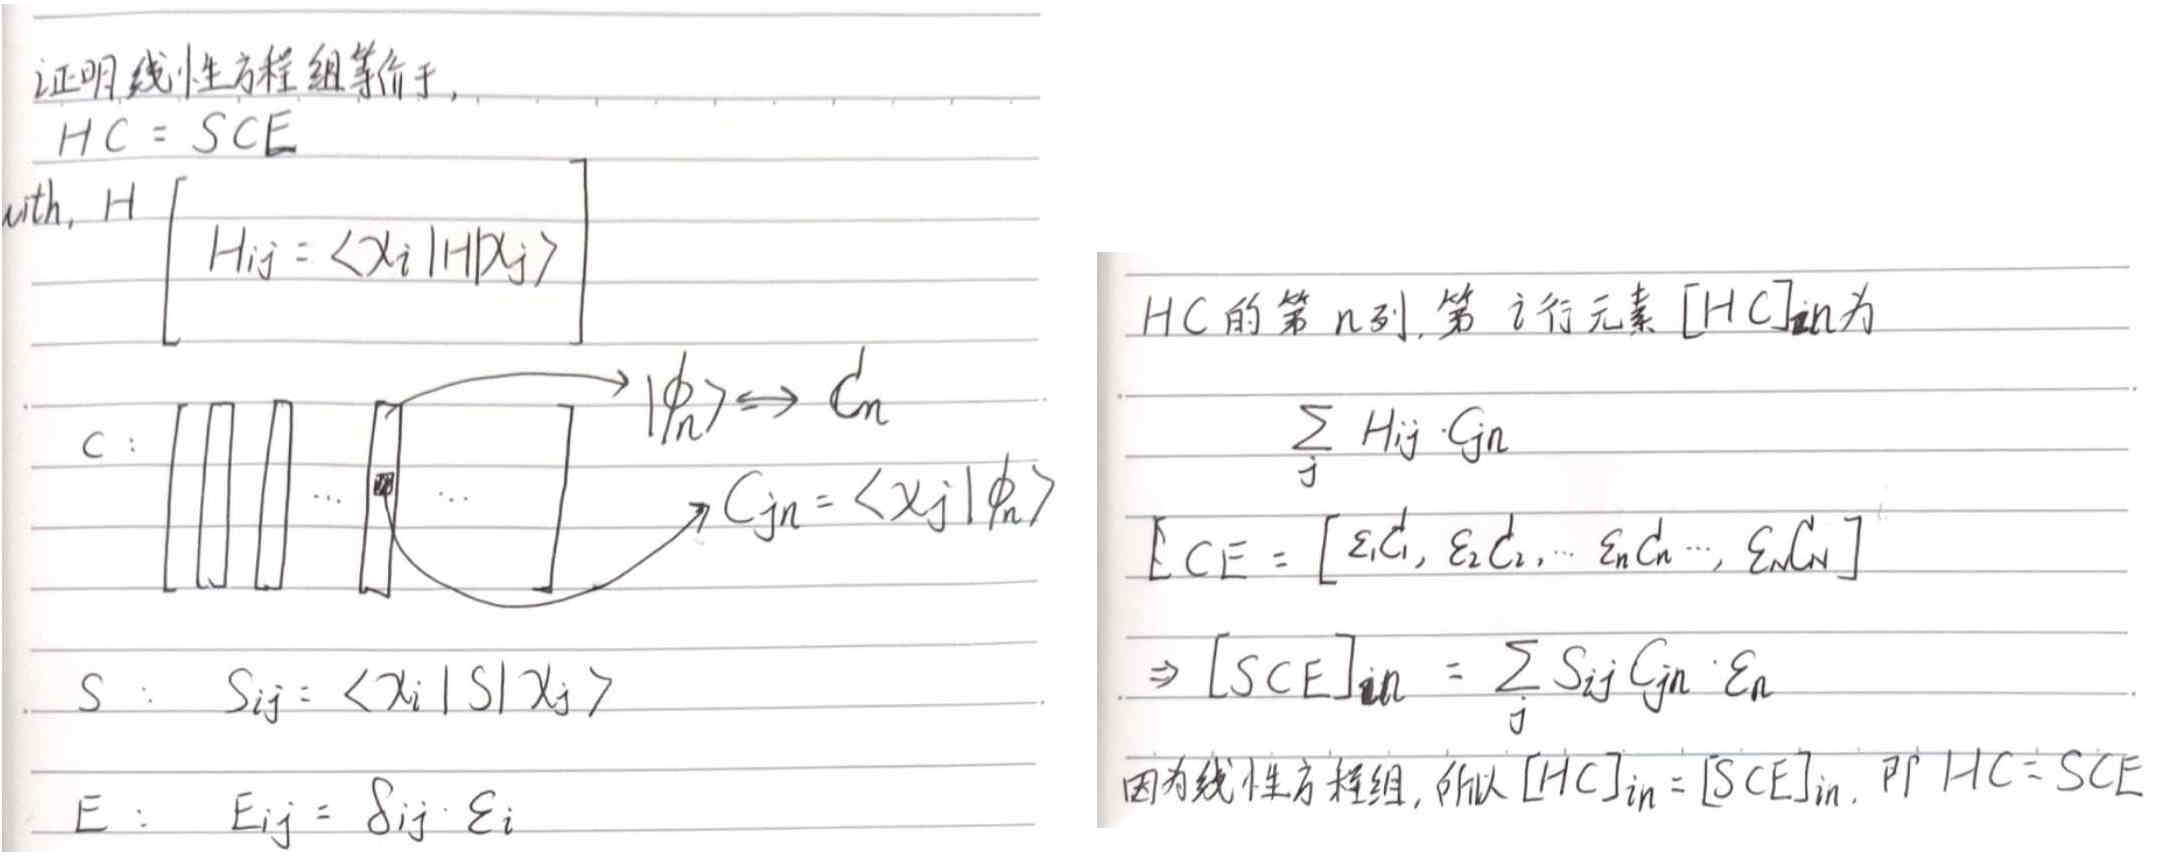 证明线性方程组等价于,
HC = SCE
with, H
Hij = <χi|H|χj>
|φn> ↔ Cn
C :
Cjn = <χj|φn>
S : Sij = <χi|S|χj>
E : Eij = δij · εi
HC的第n列,第i行元素[HC]in为
∑j Hij · Cjn
CE = [ε1C1, ε2C2, … εnCn …, εNCN]
⇒ [SCE]in = ∑j Sij Cjn · εn
因为线性方程组,所以[HC]in = [SCE]in. 即 HC = SCE